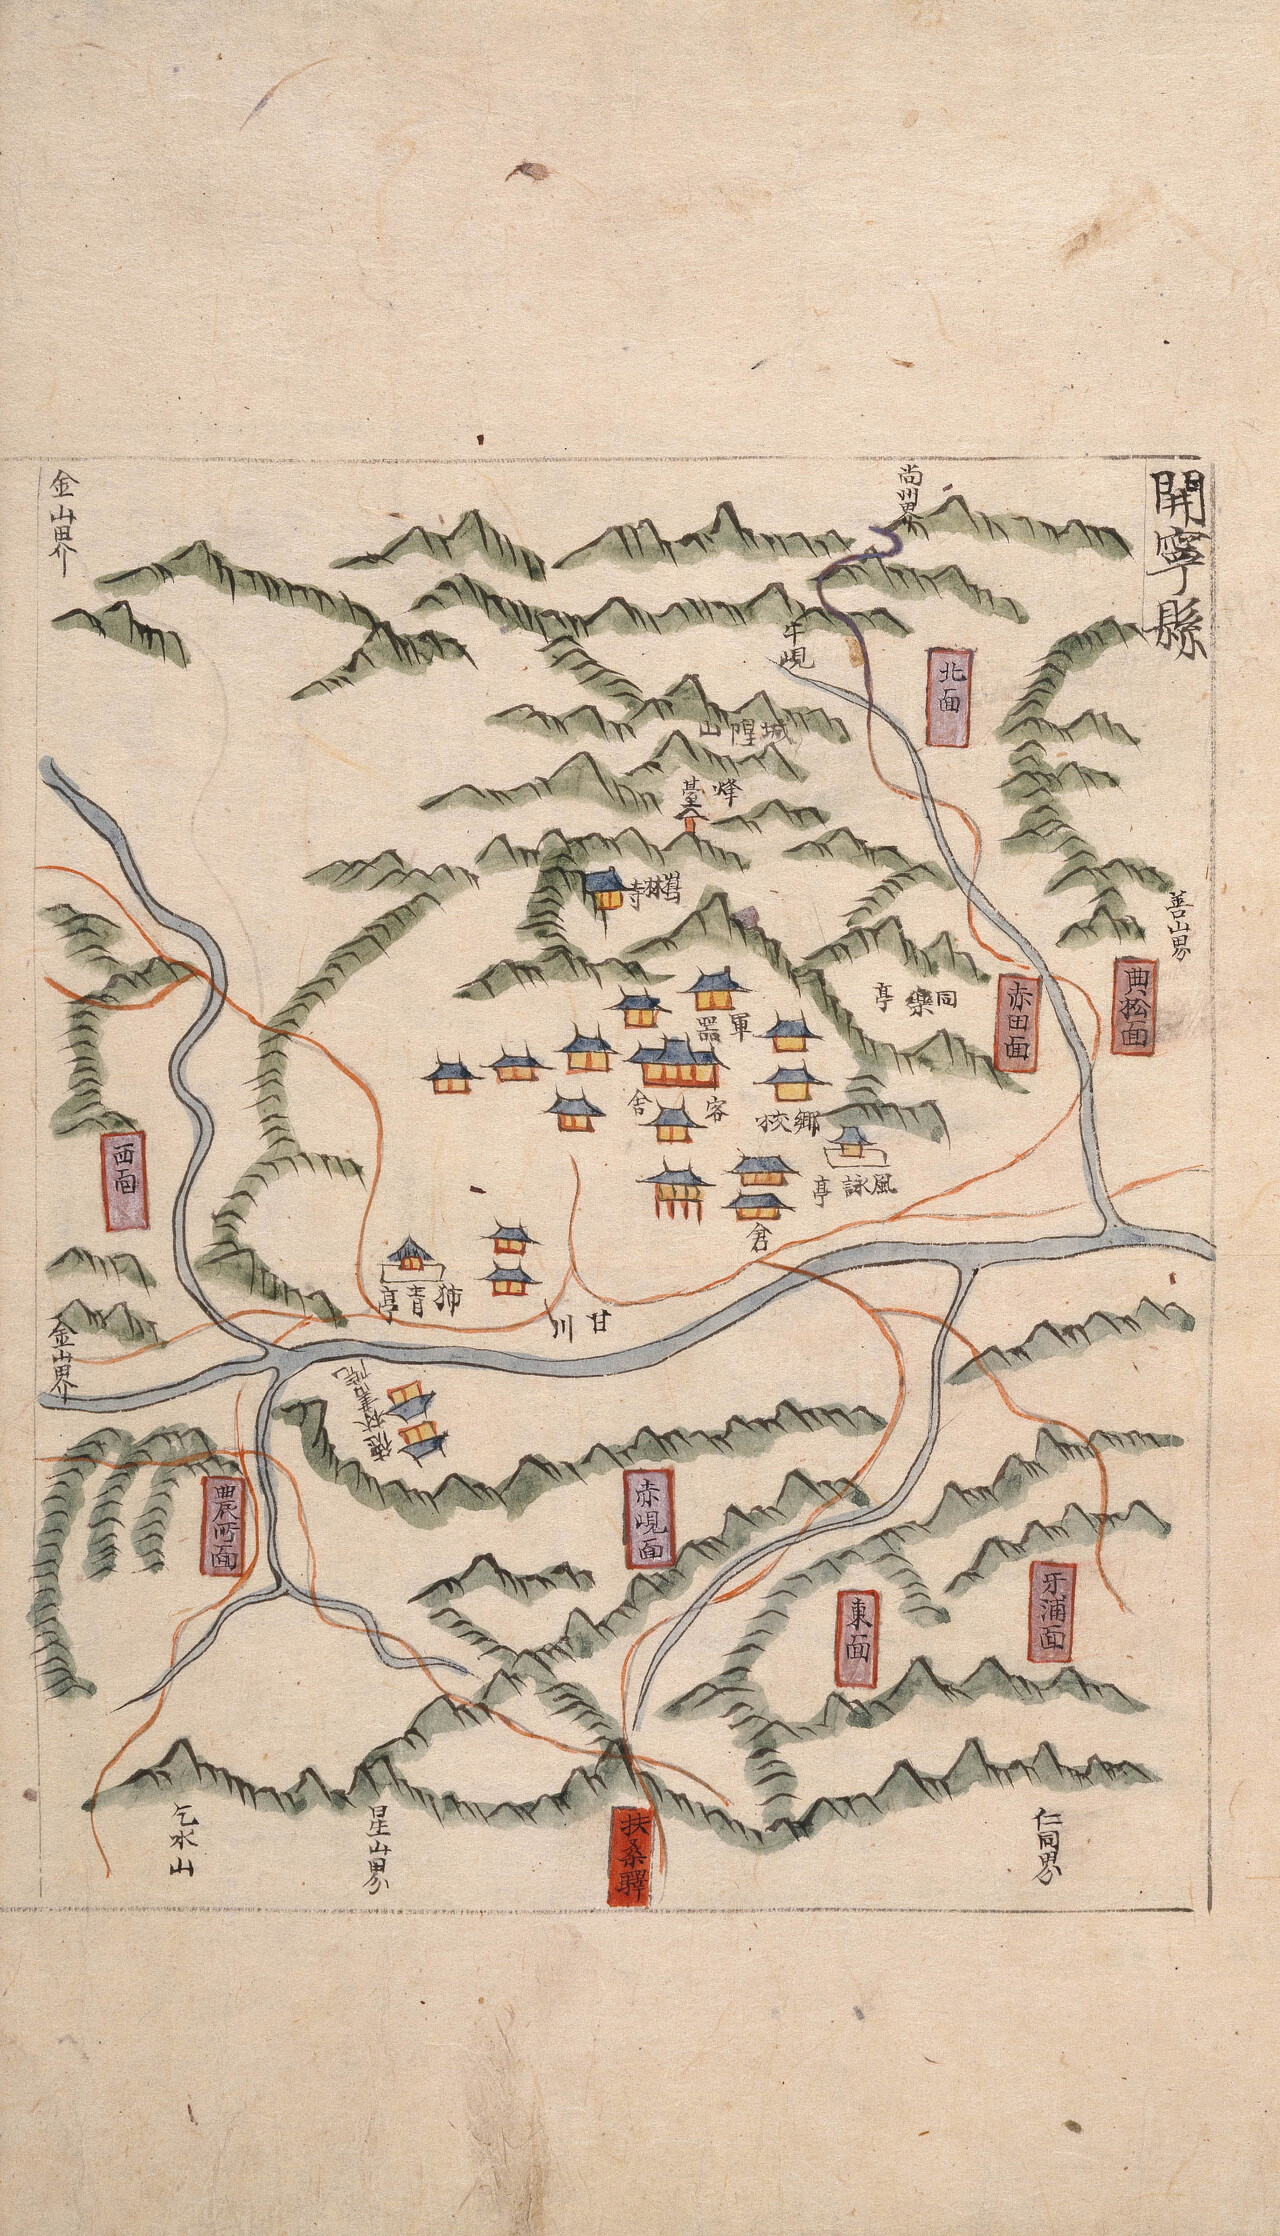 開寧縣
尚州界
金山界
牛峴
北面
城隍山
烽臺
林寺
善山界
典松面
赤田面
同樂亭
軍器
客舍
鄕校
風詠亭
倉
西面
青亭
甘川
金山界
德林書院
農所面
赤峴面
東面
牙浦面
扶桑驛
仁同界
星山界
乞水山